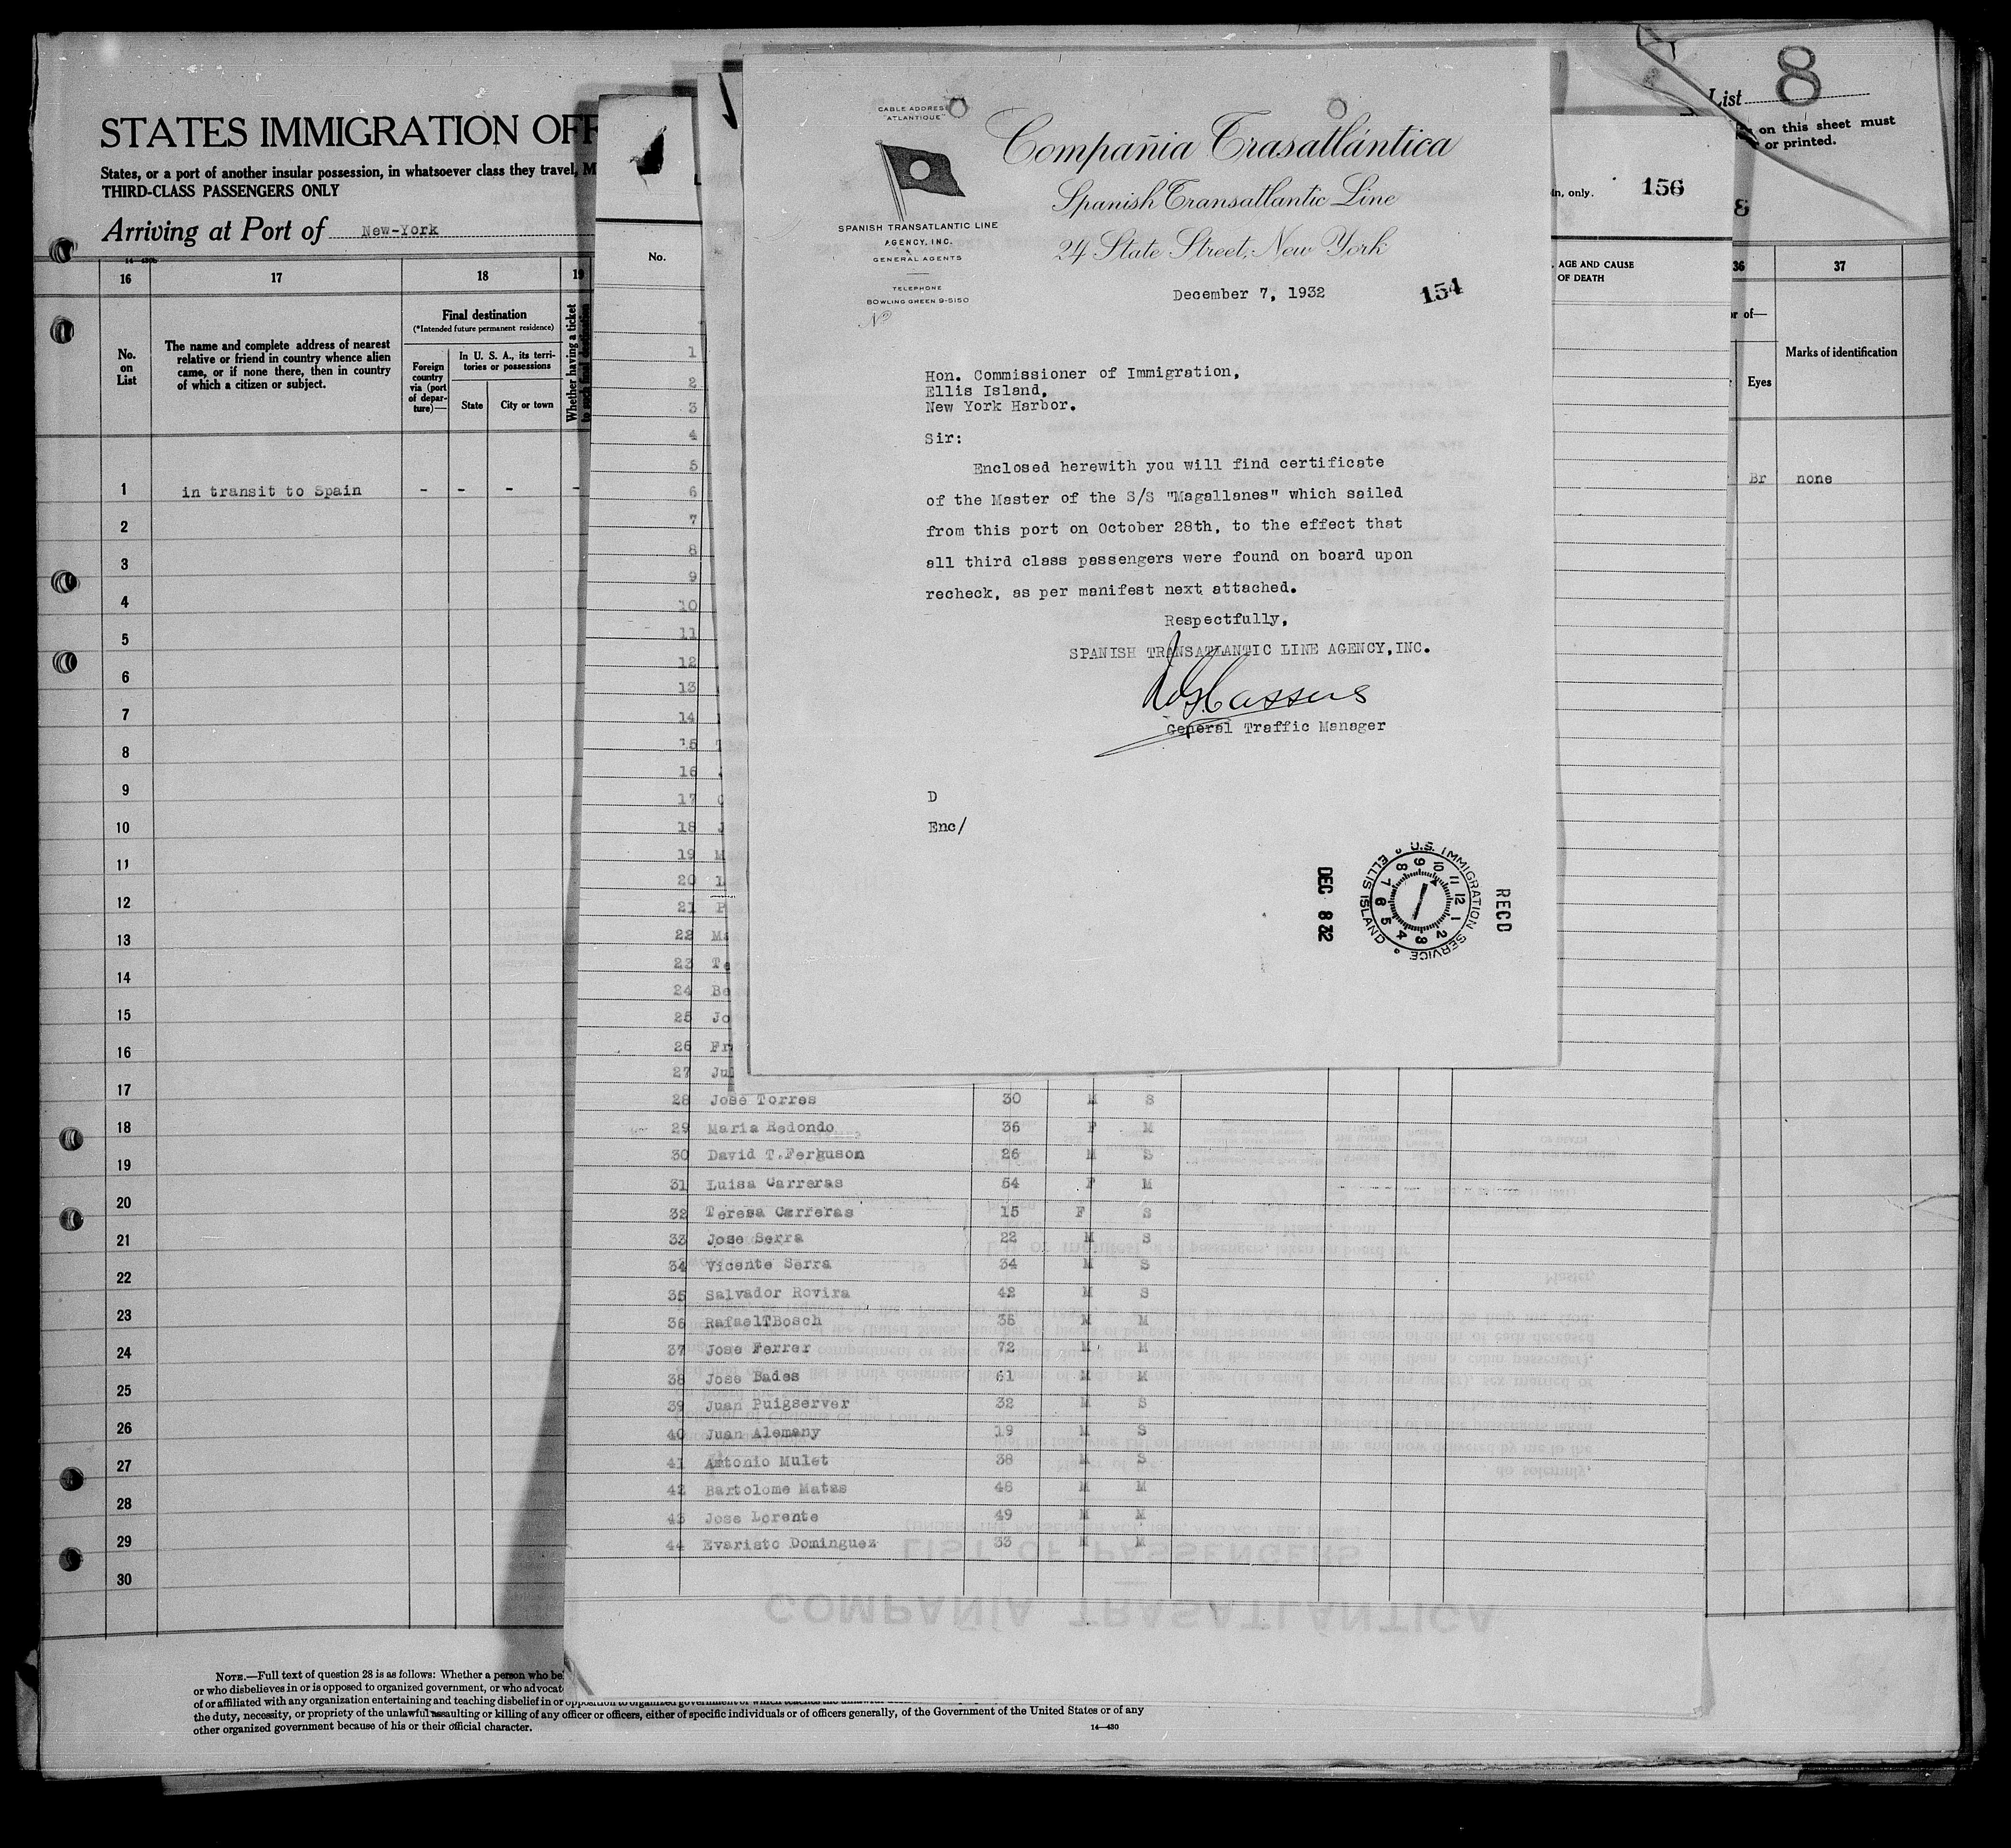 STATES IMMIGRATION OFF
States, or a port of another insular possession, in whatsoever class they travel, M
THIRD-CLASS PASSENGERS ONLY
Arriving at Port of New-York
14-430b
16
17
18
19
No.
on
List
The name and complete address of nearest
relative or friend in country whence alien
came, or if none there, then in country
of which a citizen or subject.
Final destination
(*Intended future permanent residence)
Foreign
country
via (port
of depar-
ture)—
In U. S. A., its terri-
tories or possessions
State
City or town
Whether having a ticket
to such final destination
1 in transit to Spain - - - -
2
3
4
5
6
7
8
9
10
11
12
13
14
15
16
17
18
19
20
21
22
23
24
25
26
27
28
29
30
NOTE.—Full text of question 28 is as follows: Whether a person who be
or who disbelieves in or is opposed to organized government, or who advocat
of or affiliated with any organization entertaining and teaching disbelief in or opposition to organized government or which teaches the unlawful
the duty, necessity, or propriety of the unlawful assaulting or killing of any officer or officers, either of specific individuals or of officers generally, of the Government of the United States or of any
other organized government because of his or their official character.
14—430
List 8
on this sheet must
or printed.
8
36
37
or of—
Eyes
Marks of identification
Br none
in, only.
156
, AGE AND CAUSE
OF DEATH
CABLE ADDRESS
"ATLANTIQUE"
Compañia Trasatlántica
Spanish Transatlantic Line
24 State Street, New York
SPANISH TRANSATLANTIC LINE
AGENCY, INC.
GENERAL AGENTS
TELEPHONE
BOWLING GREEN 9-5150
Nº
December 7, 1932
154
Hon. Commissioner of Immigration,
Ellis Island,
New York Harbor.
Sir:
Enclosed herewith you will find certificate
of the Master of the S/S "Magallanes" which sailed
from this port on October 28th, to the effect that
all third class passengers were found on board upon
recheck, as per manifest next attached.
Respectfully,
SPANISH TRANSATLANTIC LINE AGENCY,INC.
General Traffic Manager
D
Enc/
RECD
U.S. IMMIGRATION SERVICE
ELLIS ISLAND
1 2 3 4 5 6 7 8 9 10 11 12
DEC 8 32
No.
1
2
3
4
5
6
7
8
9
10
11
12
13
14
15
16
17
18 J
19 M
20
21 P
22 Ma
23 Te
24 Be
25 Jo
26 Fr
27 Jul
28 Jose Torres 30 M S
29 Maria Redondo 36 F M
30 David T.Ferguson 26 M S
31 Luisa Carreras 54 F M
32 Teresa Carreras 15 F S
33 Jose Serra 22 M S
34 Vicente Serra 34 M S
35 Salvador Rovira 42 M S
36 RafaelTBosch 38 M M
37 Jose Ferrer 72 M M
38 Jose Bades 61 M M
39 Juan Puigserver 32 M S
40 Juan Alemany 19 M S
41 Antonio Mulet 38 M S
42 Bartolome Matas 48 M M
43 Jose Lorente 49 M M
44 Evaristo Dominguez 33 M M
LIST OF PASSENGERS
COMPAÑÍA TRASATLÁNTICA